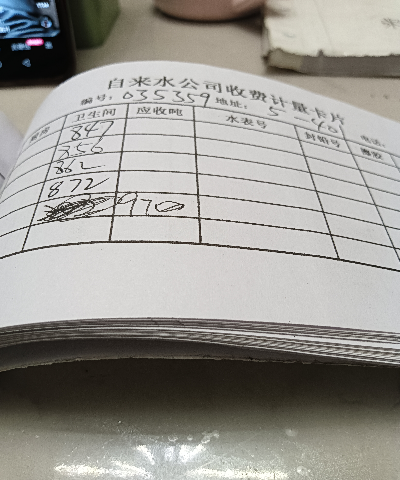 自来水公司收费计量卡片
编号：035359 地址：5-401 电话：
厨房 卫生间 应收吨 水表号 封铅号
847
856
862
872
970